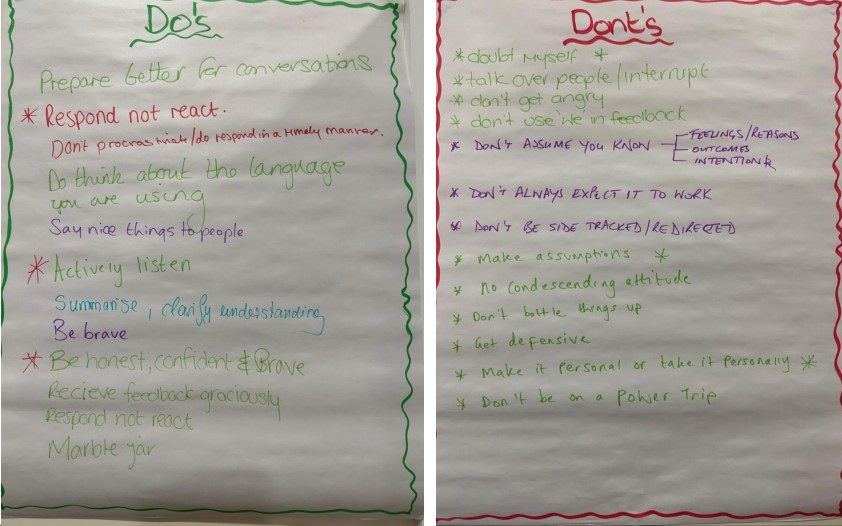 Do's
Prepare better for conversations
* Respond not react.
Don't procrastinate/do respond in a timely manner.
Do think about the language
you are using
Say nice things to people
* Actively listen
Summarise, clarify understanding
Be brave
* Be honest, confident & Brave
Recieve feedback graciously
Respond not react
Marble jar
Dont's
* doubt myself *
* talk over people/interrupt
* don't get angry
* don't use 'we' in feedback
* DON'T ASSUME YOU KNOW - FEELINGS/REASONS
- OUTCOMES
- INTENTION
* DON'T ALWAYS EXPECT IT TO WORK
* DON'T BE SIDE TRACKED/REDIRECTED
* Make assumptions *
* No condescending attitude
* Don't bottle things up
* Get defensive
* Make it personal or take it Personally *
* Don't be on a Power Trip